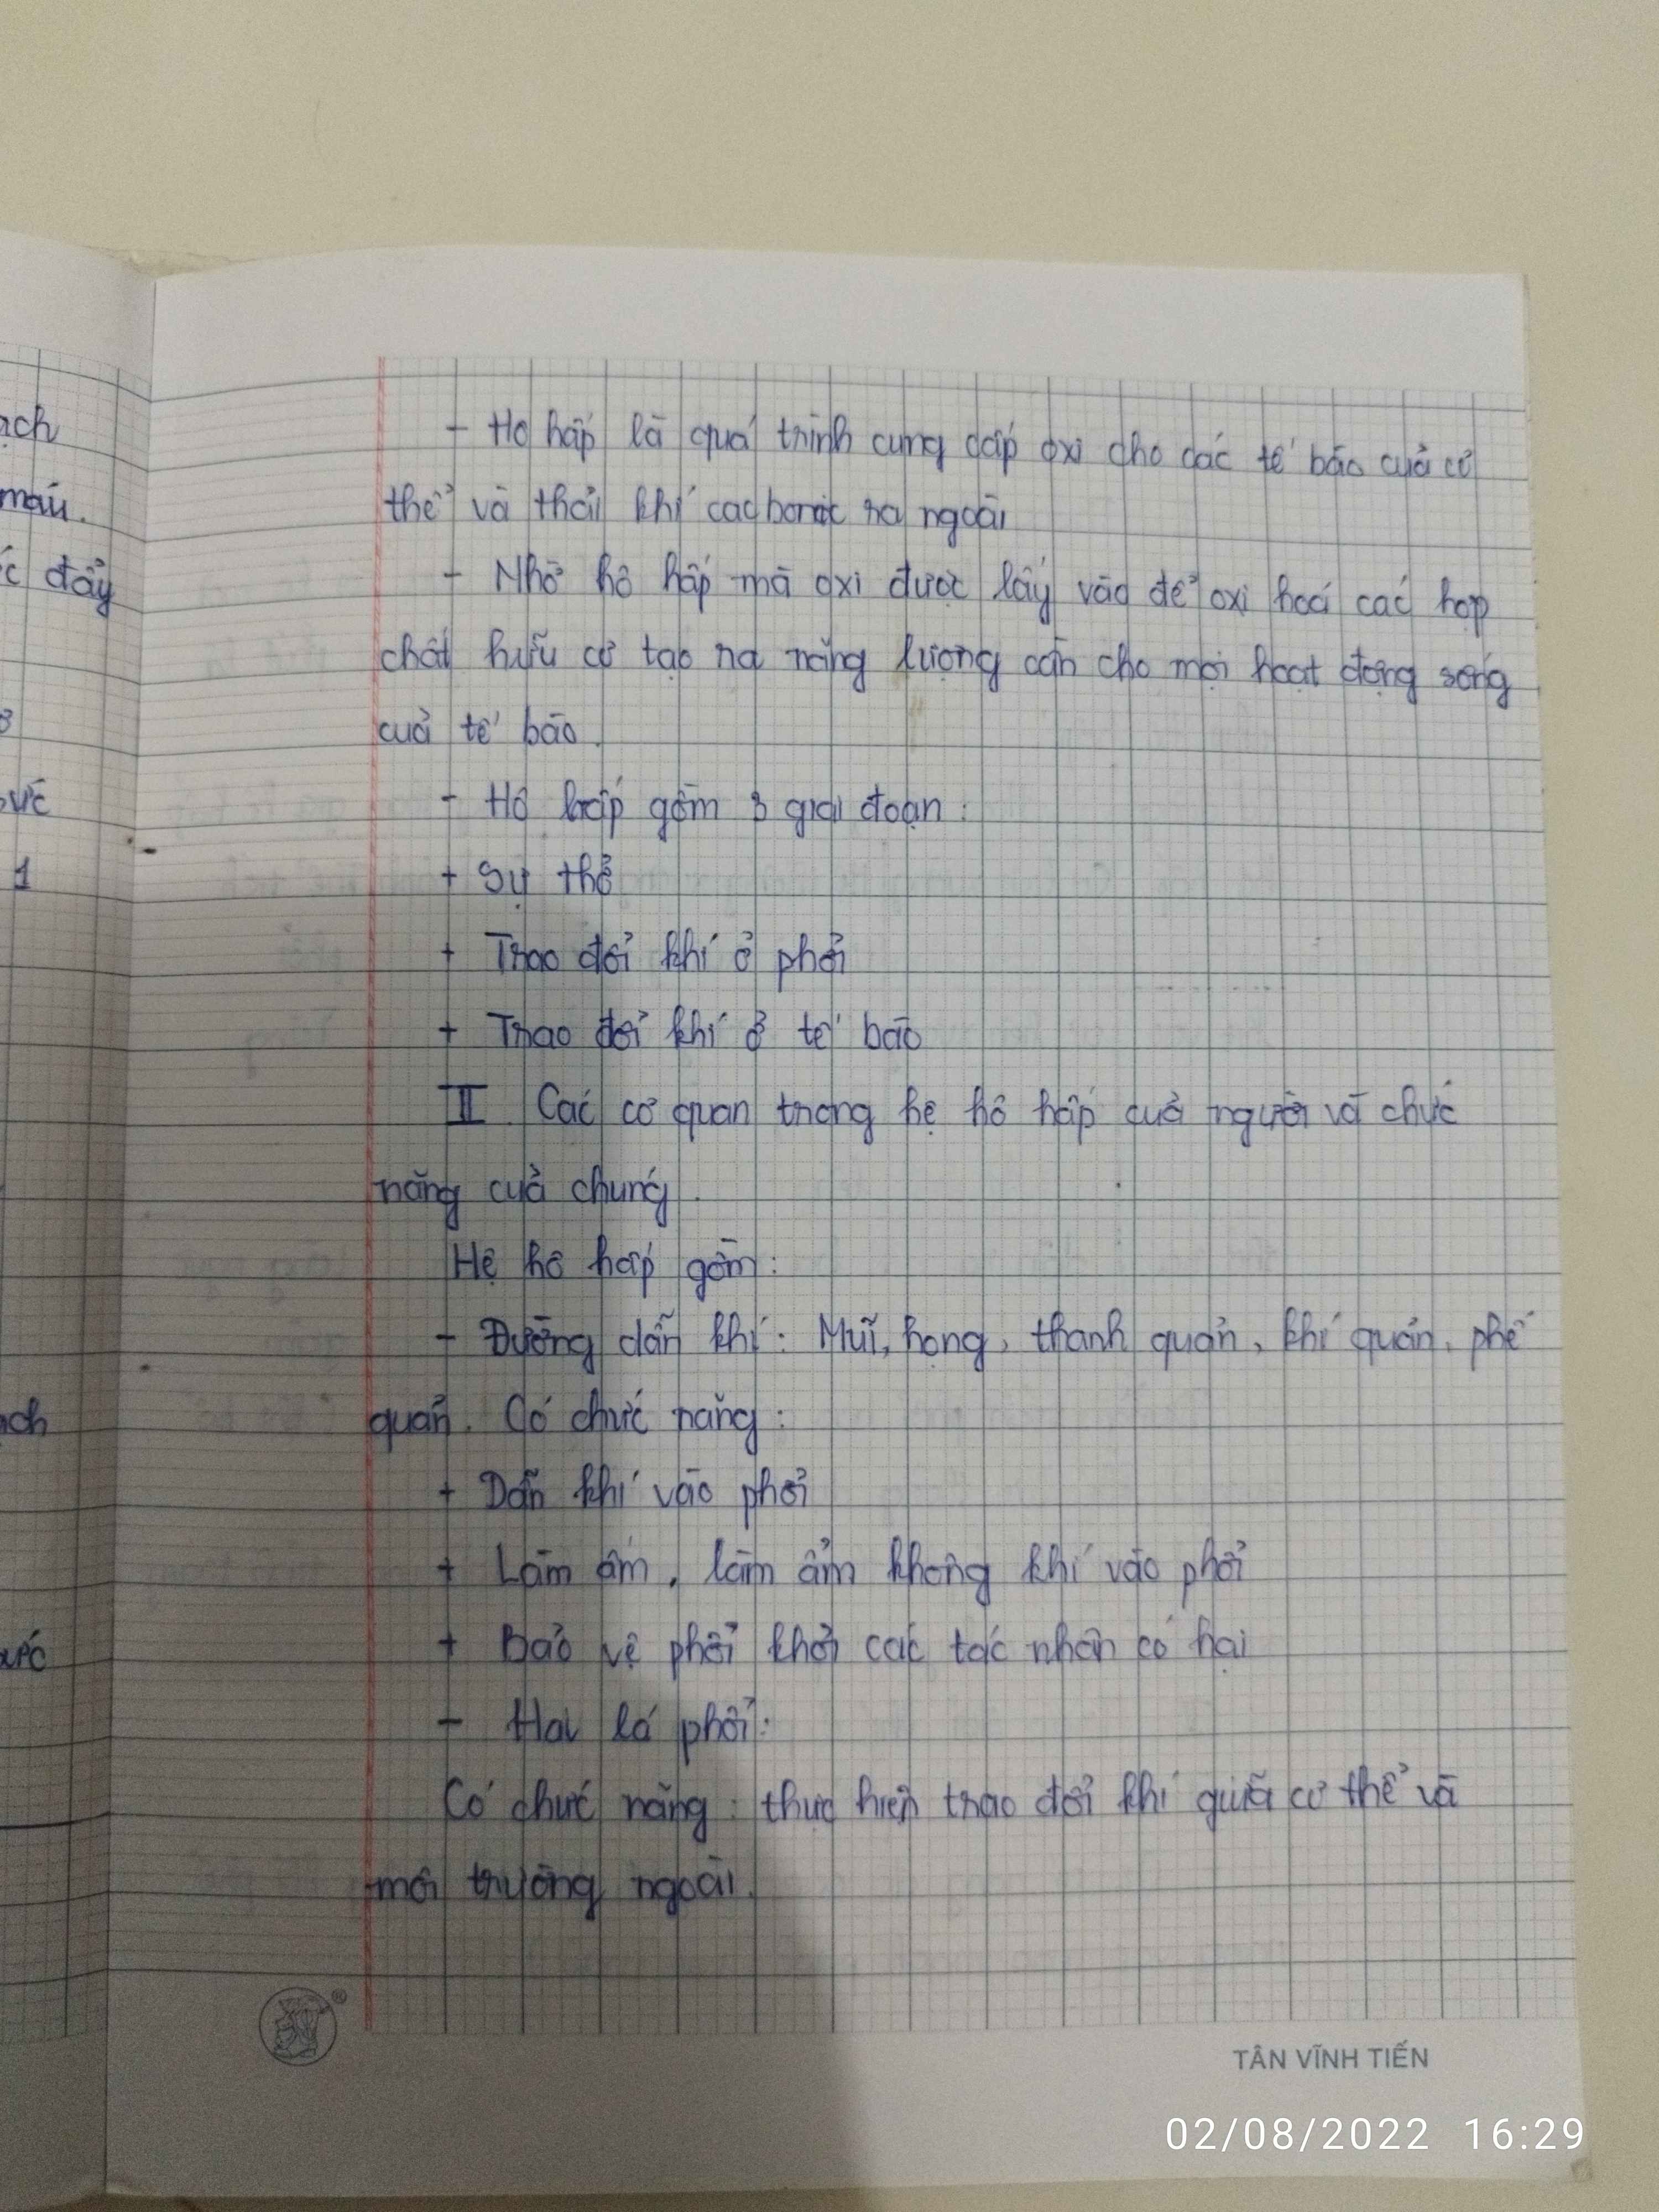 ạch
máu.
ức đẩy
ở
ực
1
ạch
ước
- Hô hấp là quá trình cung cấp oxi cho các tế bào của cơ
thể và thải khí cacbonic ra ngoài
- Nhờ hô hấp mà oxi được lấy vào để oxi hoá các hợp
chất hữu cơ tạo ra năng lượng cần cho mọi hoạt động sống
của tế bào.
- Hô hấp gồm 3 giai đoạn:
+ Sự thở
+ Trao đổi khí ở phổi
+ Trao đổi khí ở tế bào
II. Các cơ quan trong hệ hô hấp của người và chức
năng của chúng.
Hệ hô hấp gồm:
- Đường dẫn khí: Mũi, họng, thanh quản, khí quản, phế
quản. Có chức năng:
+ Dẫn khí vào phổi
+ Làm ấm, làm ẩm không khí vào phổi
+ Bảo vệ phổi khỏi các tác nhân có hại
- Hai lá phổi:
Có chức năng: thực hiện trao đổi khí giữa cơ thể và
môi trường ngoài.
®
TÂN VĨNH TIẾN
02/08/2022 16:29